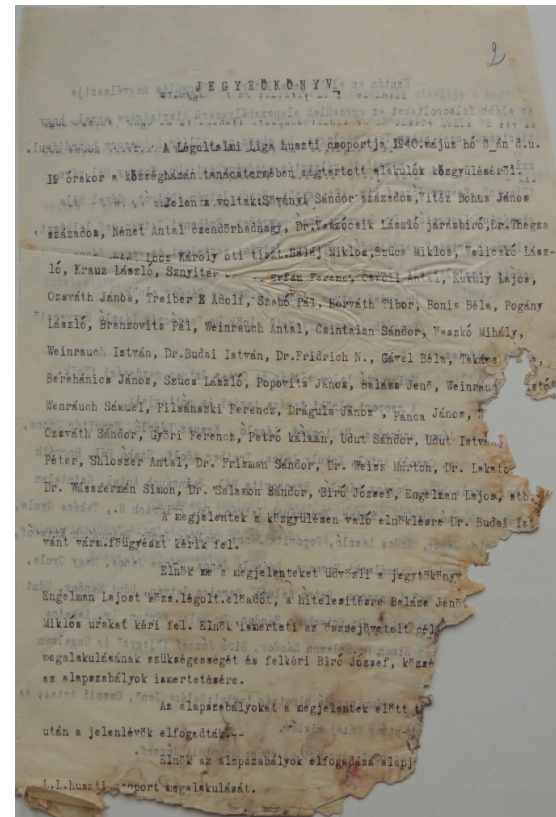 2
JEGYZŐKÖNYV.
A Légoltalmi Liga huszti csoportja 1940.május hó 3 án d.u.
19 órakor a községházán tanácstermében megtartott alakulók közgyüléséről.
Jelen voltak:Sövényi Sándor százados,Vitéz Bohus János
százados, Német Antal csendőrhadnagy, Dr.Vaszócsik László járásbiró,Dr.Thegza
Károly óti tiszt.Baláj Miklós,Szücs Miklós, Velicskó Lász-
ló, Krausz László, Sznyitár Erfán Ferenc, Antal, Kukuly Lajos,
Ozsváth János, Treiber E Adolf, Szabó Pál, Horváth Tibor, Bonis Béla, Pogány
László, Branzovits Pál, Weinrauch Antal, Csintalan Sándor, Vaszkó Mihály,
Weinrauch István, Dr.Budai István, Dr.Fridrich N., Gável Béla, Takács
Berehánics János, Szücs László, Popovits János, Balázs Jenő, Weinrauch
Wenrauch Sámuel, Pilsánszki Ferencz, Dragula János , Panca János,
Ozsváth Sándor, Györi Ferencz, Petró Kálmán, Udut Sándor, Udut István
Péter, Shloszer Antal, Dr. Frisman Sándor, Dr. Weisz Márton, Dr. Lakato
Dr. Wásszerman Simon, Dr. Salamon Sándor, Biró József, Engelman Lajos, stb.
A megjelentek a közgyülésen való elnöklésre Dr. Budai Ist
vánt várm.főügyészt kérik fel.
Elnök me a megjelenteket üdvözli a jegytökönyv
Engelman Lajost közs.légolt.előadót, a hitelesitésre Balázs Jenő
Miklós urakat kéri fel. Elnök ismerteti az összejövetelt célj
megalakulásának szükségességét és felkéri Biró József, közsé
az alapszabályok ismertetésére.
Az alapszabályokat a megjelentek előtt
után a jelenlévők elfogadták.--
Elnök az alapszabályok elfogadása alapj
L.L.huszti csoport megalakulását.